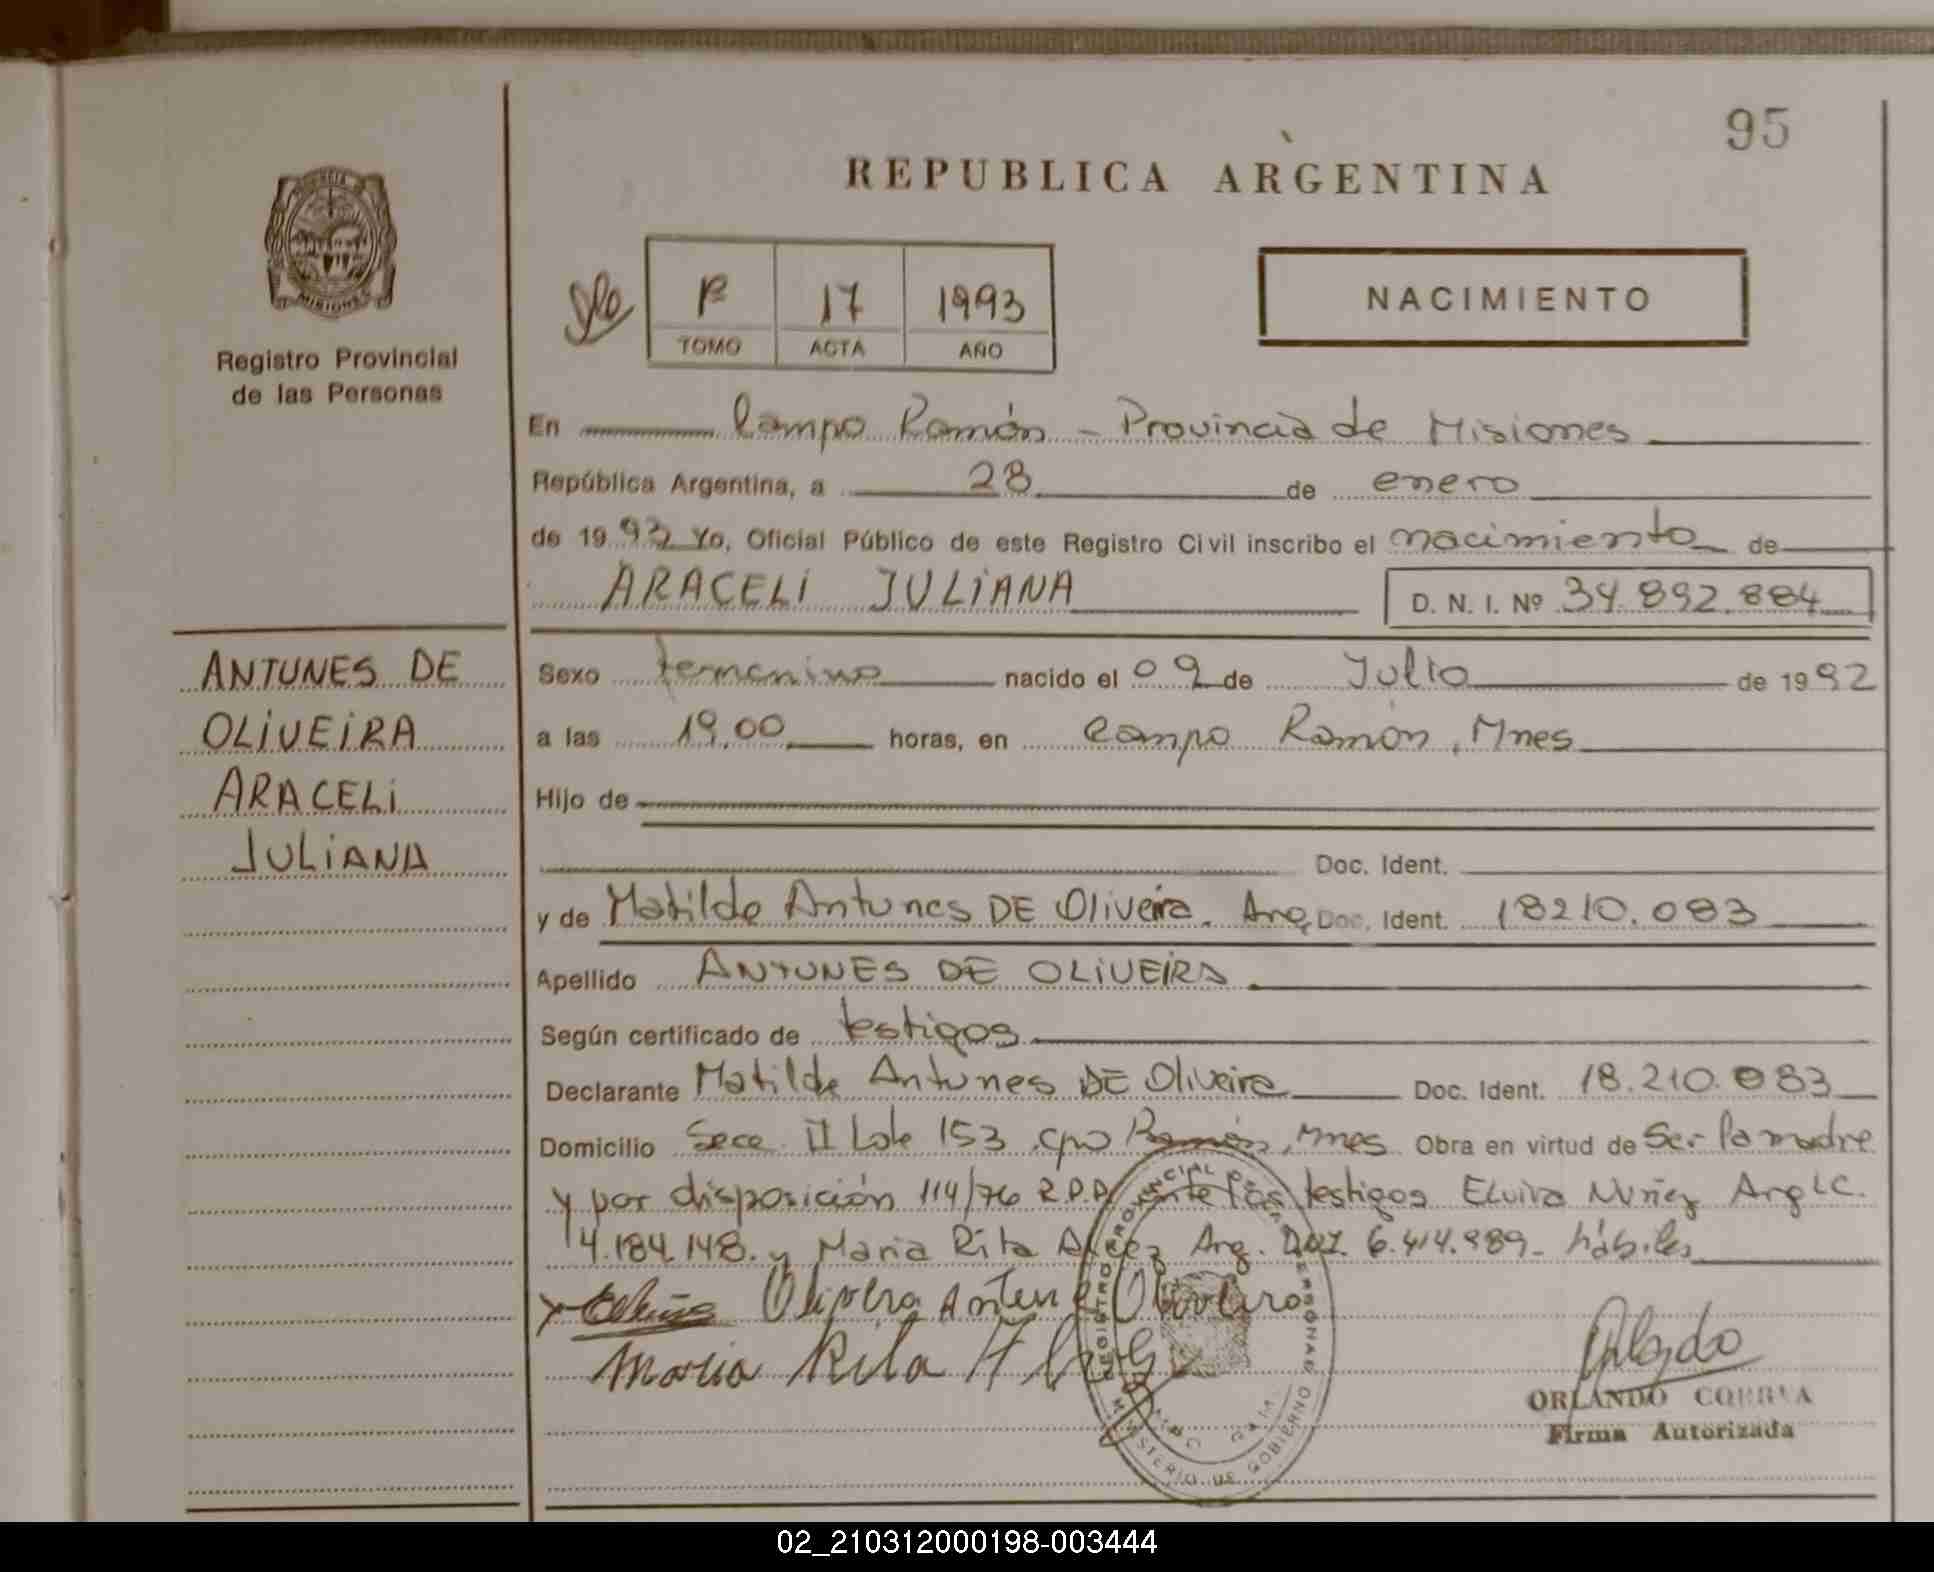 95
REPUBLICA ARGENTINA
MISIONES
Registro Provincial
de las Personas
1º 17 1993
TOMO ACTA AÑO
NACIMIENTO
En Campo Ramón - Provincia de Misiones
República Argentina, a 28 de enero
de 1993 Yo, Oficial Público de este Registro Civil inscribo el nacimiento de
ARACELI JULIANA D. N. I. Nº 34.892.884
ANTUNES DE
OLIVEIRA
ARACELI
JULIANA
Sexo femenino nacido el 09 de Julio de 1992
a las 19,00 horas, en Campo Ramón, Mnes
Hijo de
Doc. Ident.
y de Matilde Antunes DE Oliveira. Arg Doc. Ident. 18210.083
Apellido ANTUNES DE OLIVEIRA
Según certificado de testigos
Declarante Matilde Antunes DE Oliveira Doc. Ident. 18.210.083
Domicilio Secc. II Lote 153, cpo Ramón, Mnes. Obra en virtud de Ser la madre
y por disposición 114/76 R.P.P. ante los testigos Elvira Nuñez Arg LC.
4.184.148. y Maria Rita Arg. DNI. 6.414.989- hábiles
Olivera Antune Oliveira
Maria Rita
REGISTRO PROVINCIAL DE LAS PERSONAS
MINISTERIO DE GOBIERNO
Orlando
ORLANDO CORREA
Firma Autorizada
02_210312000198-003444